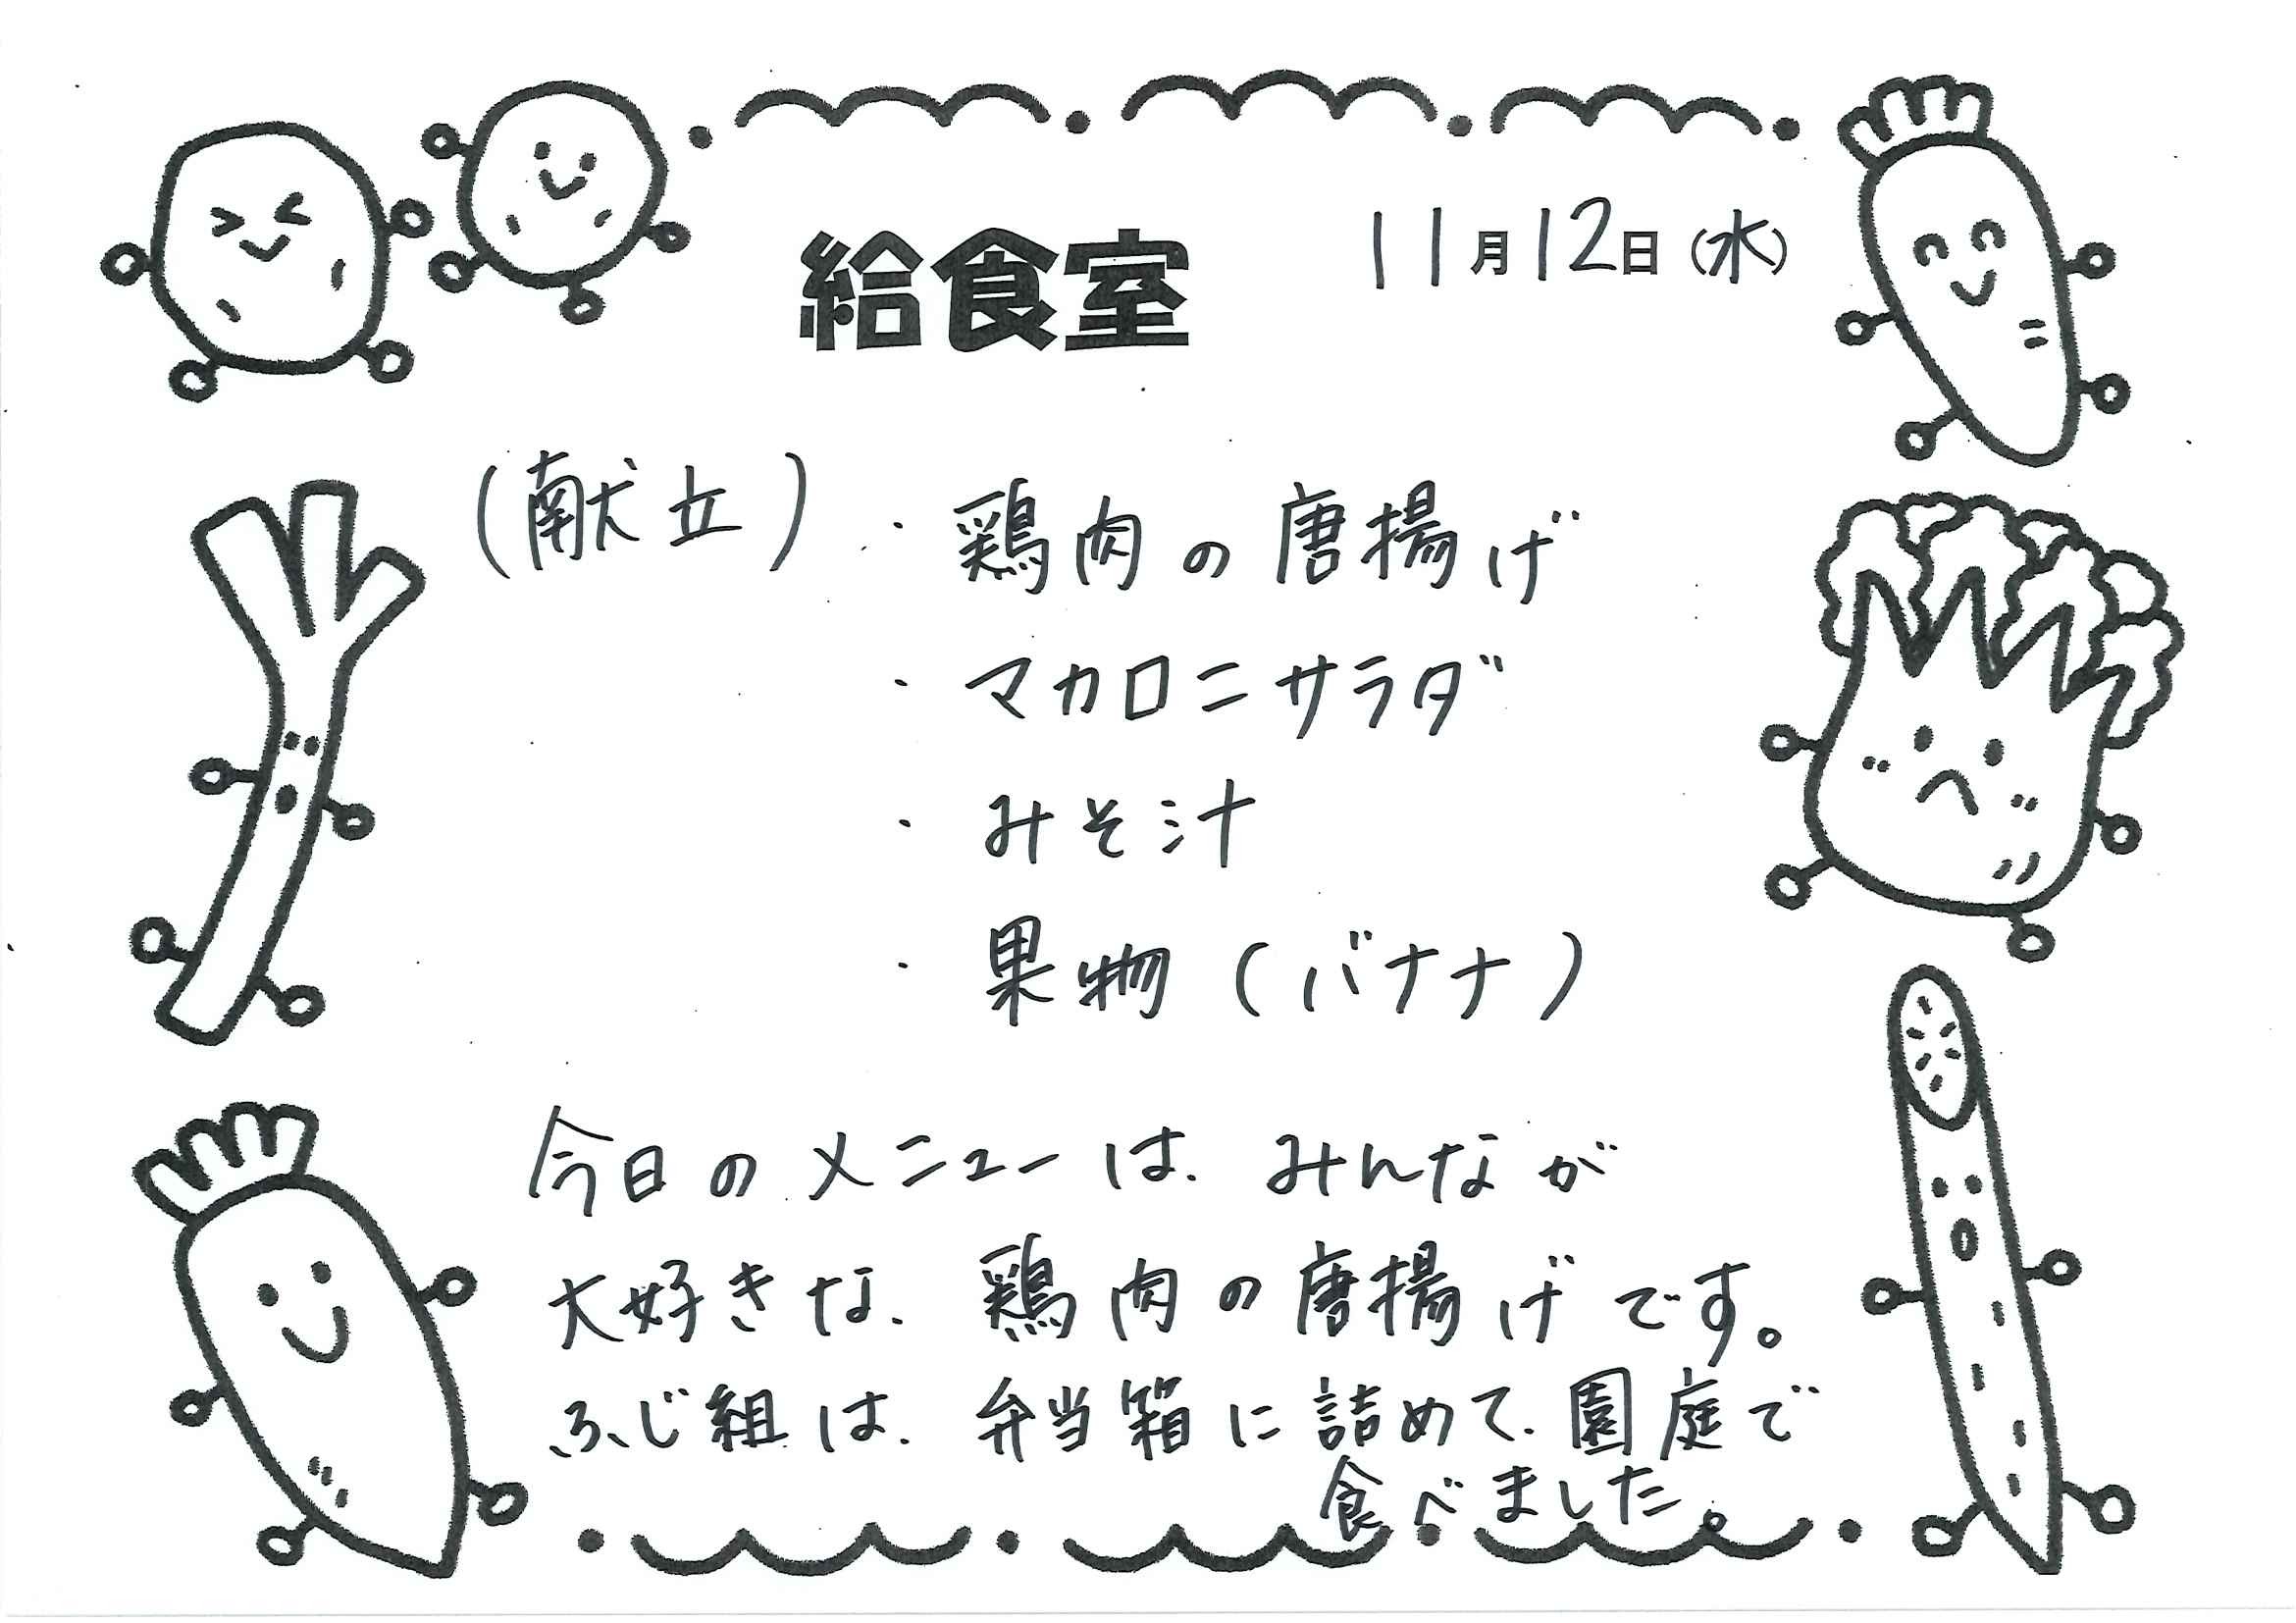 給食室
11月12日(水)
(献立)・鶏肉の唐揚げ
・マカロニサラダ
・みそ汁
・果物(バナナ)
今日のメニューは、みんなが
大好きな、鶏肉の唐揚げです。
ふじ組は、弁当箱に詰めて、園庭で
食べました。